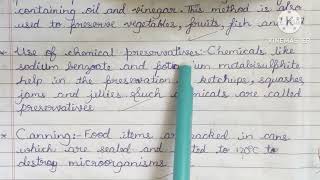 containing oil and vinegar. This method is also
used to preserve vegetables, fruits, fish and
* Use of chemical preservatives:- Chemicals like
sodium benzoate and metabisulphite
help in the preservation ketchups, squashes
jams and jellies. Such chemicals are called
preservatives
* Canning:- Food items are packed in cans
which are sealed and to 120°C to
destroy microorganisms